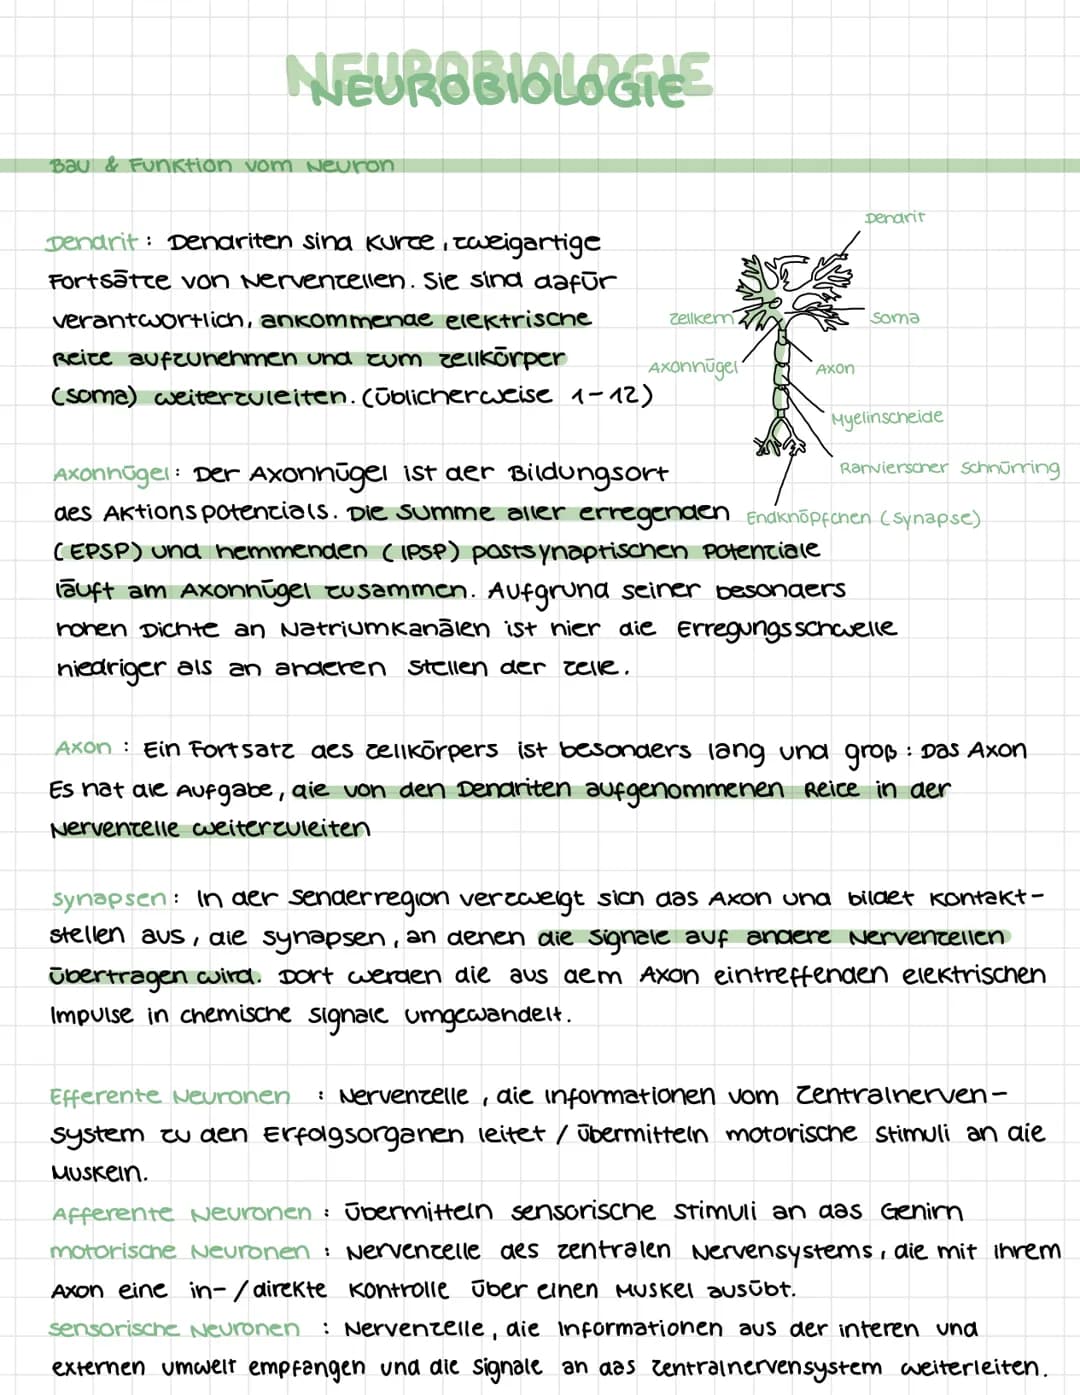 NEUROBIOLOGIE
Bau & Funktion vom Neuron
Dendrit
Dendrit: Dendriten sind kurze, zweigartige
Fortsätze von Nervenzellen. Sie sind dafür
verantwortlich, ankommende elektrische
Reize aufzunehmen und zum Zellkörper
(Soma) weiterzuleiten. (üblicherweise 1-12)
Zellkern
Soma
Axonhügel
Axon
Myelinscheide
Ranvierscher Schnürring
Endknöpfchen (Synapse)
Axonhügel: Der Axonhügel ist der Bildungsort
des Aktionspotenzials. Die Summe aller erregenden
(EPSP) und hemmenden (IPSP) postsynaptischen Potenziale
läuft am Axonhügel zusammen. Aufgrund seiner besonders
hohen Dichte an Natriumkanälen ist hier die Erregungsschwelle
niedriger als an anderen Stellen der Zelle.
Axon: Ein Fortsatz des Zellkörpers ist besonders lang und groß: Das Axon
Es hat die Aufgabe, die von den Dendriten aufgenommenen Reize in der
Nervenzelle weiterzuleiten
Synapsen: In der Senderregion verzweigt sich das Axon und bildet Kontakt-
stellen aus, die Synapsen, an denen die Signale auf andere Nervenzellen
übertragen wird. Dort werden die aus dem Axon eintreffenden elektrischen
Impulse in chemische Signale umgewandelt.
Efferente Neuronen : Nervenzelle, die Informationen vom Zentralnerven-
system zu den Erfolgsorganen leitet / übermitteln motorische Stimuli an die
Muskeln.
Afferente Neuronen: übermitteln sensorische Stimuli an das Gehirn
motorische Neuronen: Nervenzelle des zentralen Nervensystems, die mit ihrem
Axon eine in-/direkte Kontrolle über einen Muskel ausübt.
sensorische Neuronen : Nervenzelle, die Informationen aus der interen und
externen Umwelt empfangen und die Signale an das Zentralnervensystem weiterleiten.